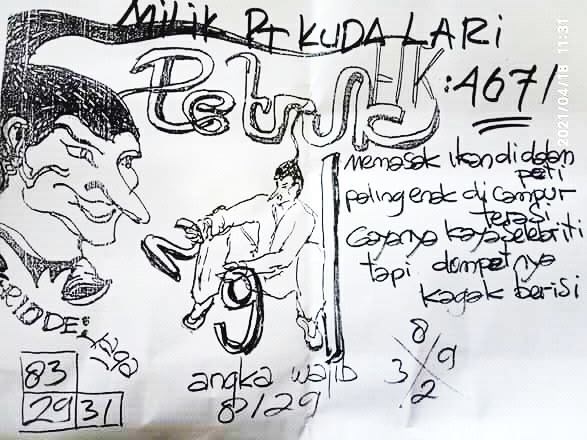 MILIK PT KUDA LARI
Petruk
EK : A671
memasak ikan didalam
peti
paling enak di campur
terasi
Gayanya kaya selebriti
tapi dompetnya
kagak berisi
2
9
RIODE: Jaga
83
29 31
angka wajib
8129
8
3 9
2
2021/04/18 11:31